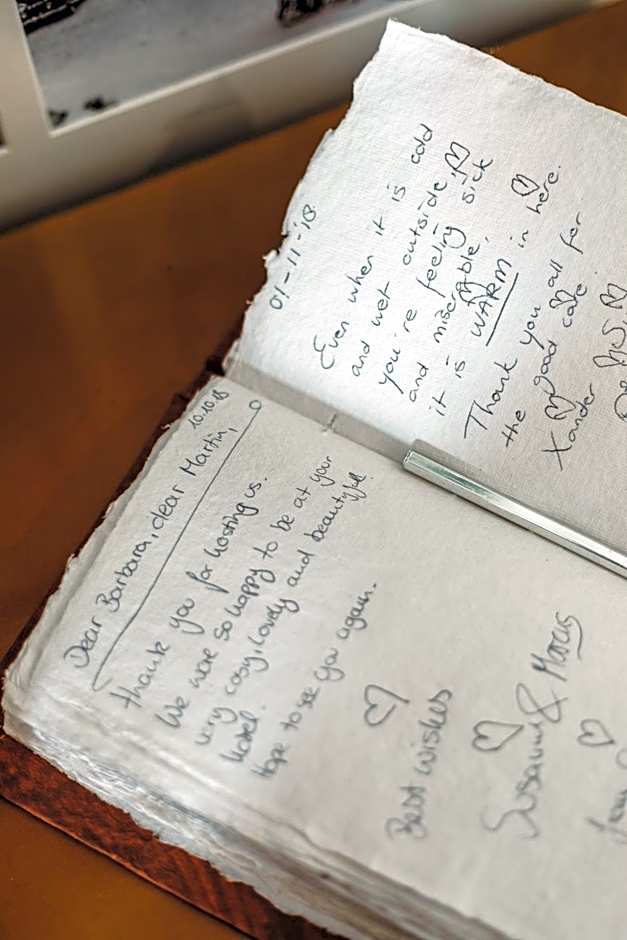 10.10.18
Dear Barbara, dear Martin,
thank you for hosting us.
We were so happy to be at your
very cosy, lovely and beautyful
hotel.
Hope to see you again.
Best wishes
Susanne & Marcus
from
01-11-'18
Even when it is cold
and wet outside,
you're feeling sick
and miserable,
it is WARM in here.
Thank you all for
the good care.
Xander